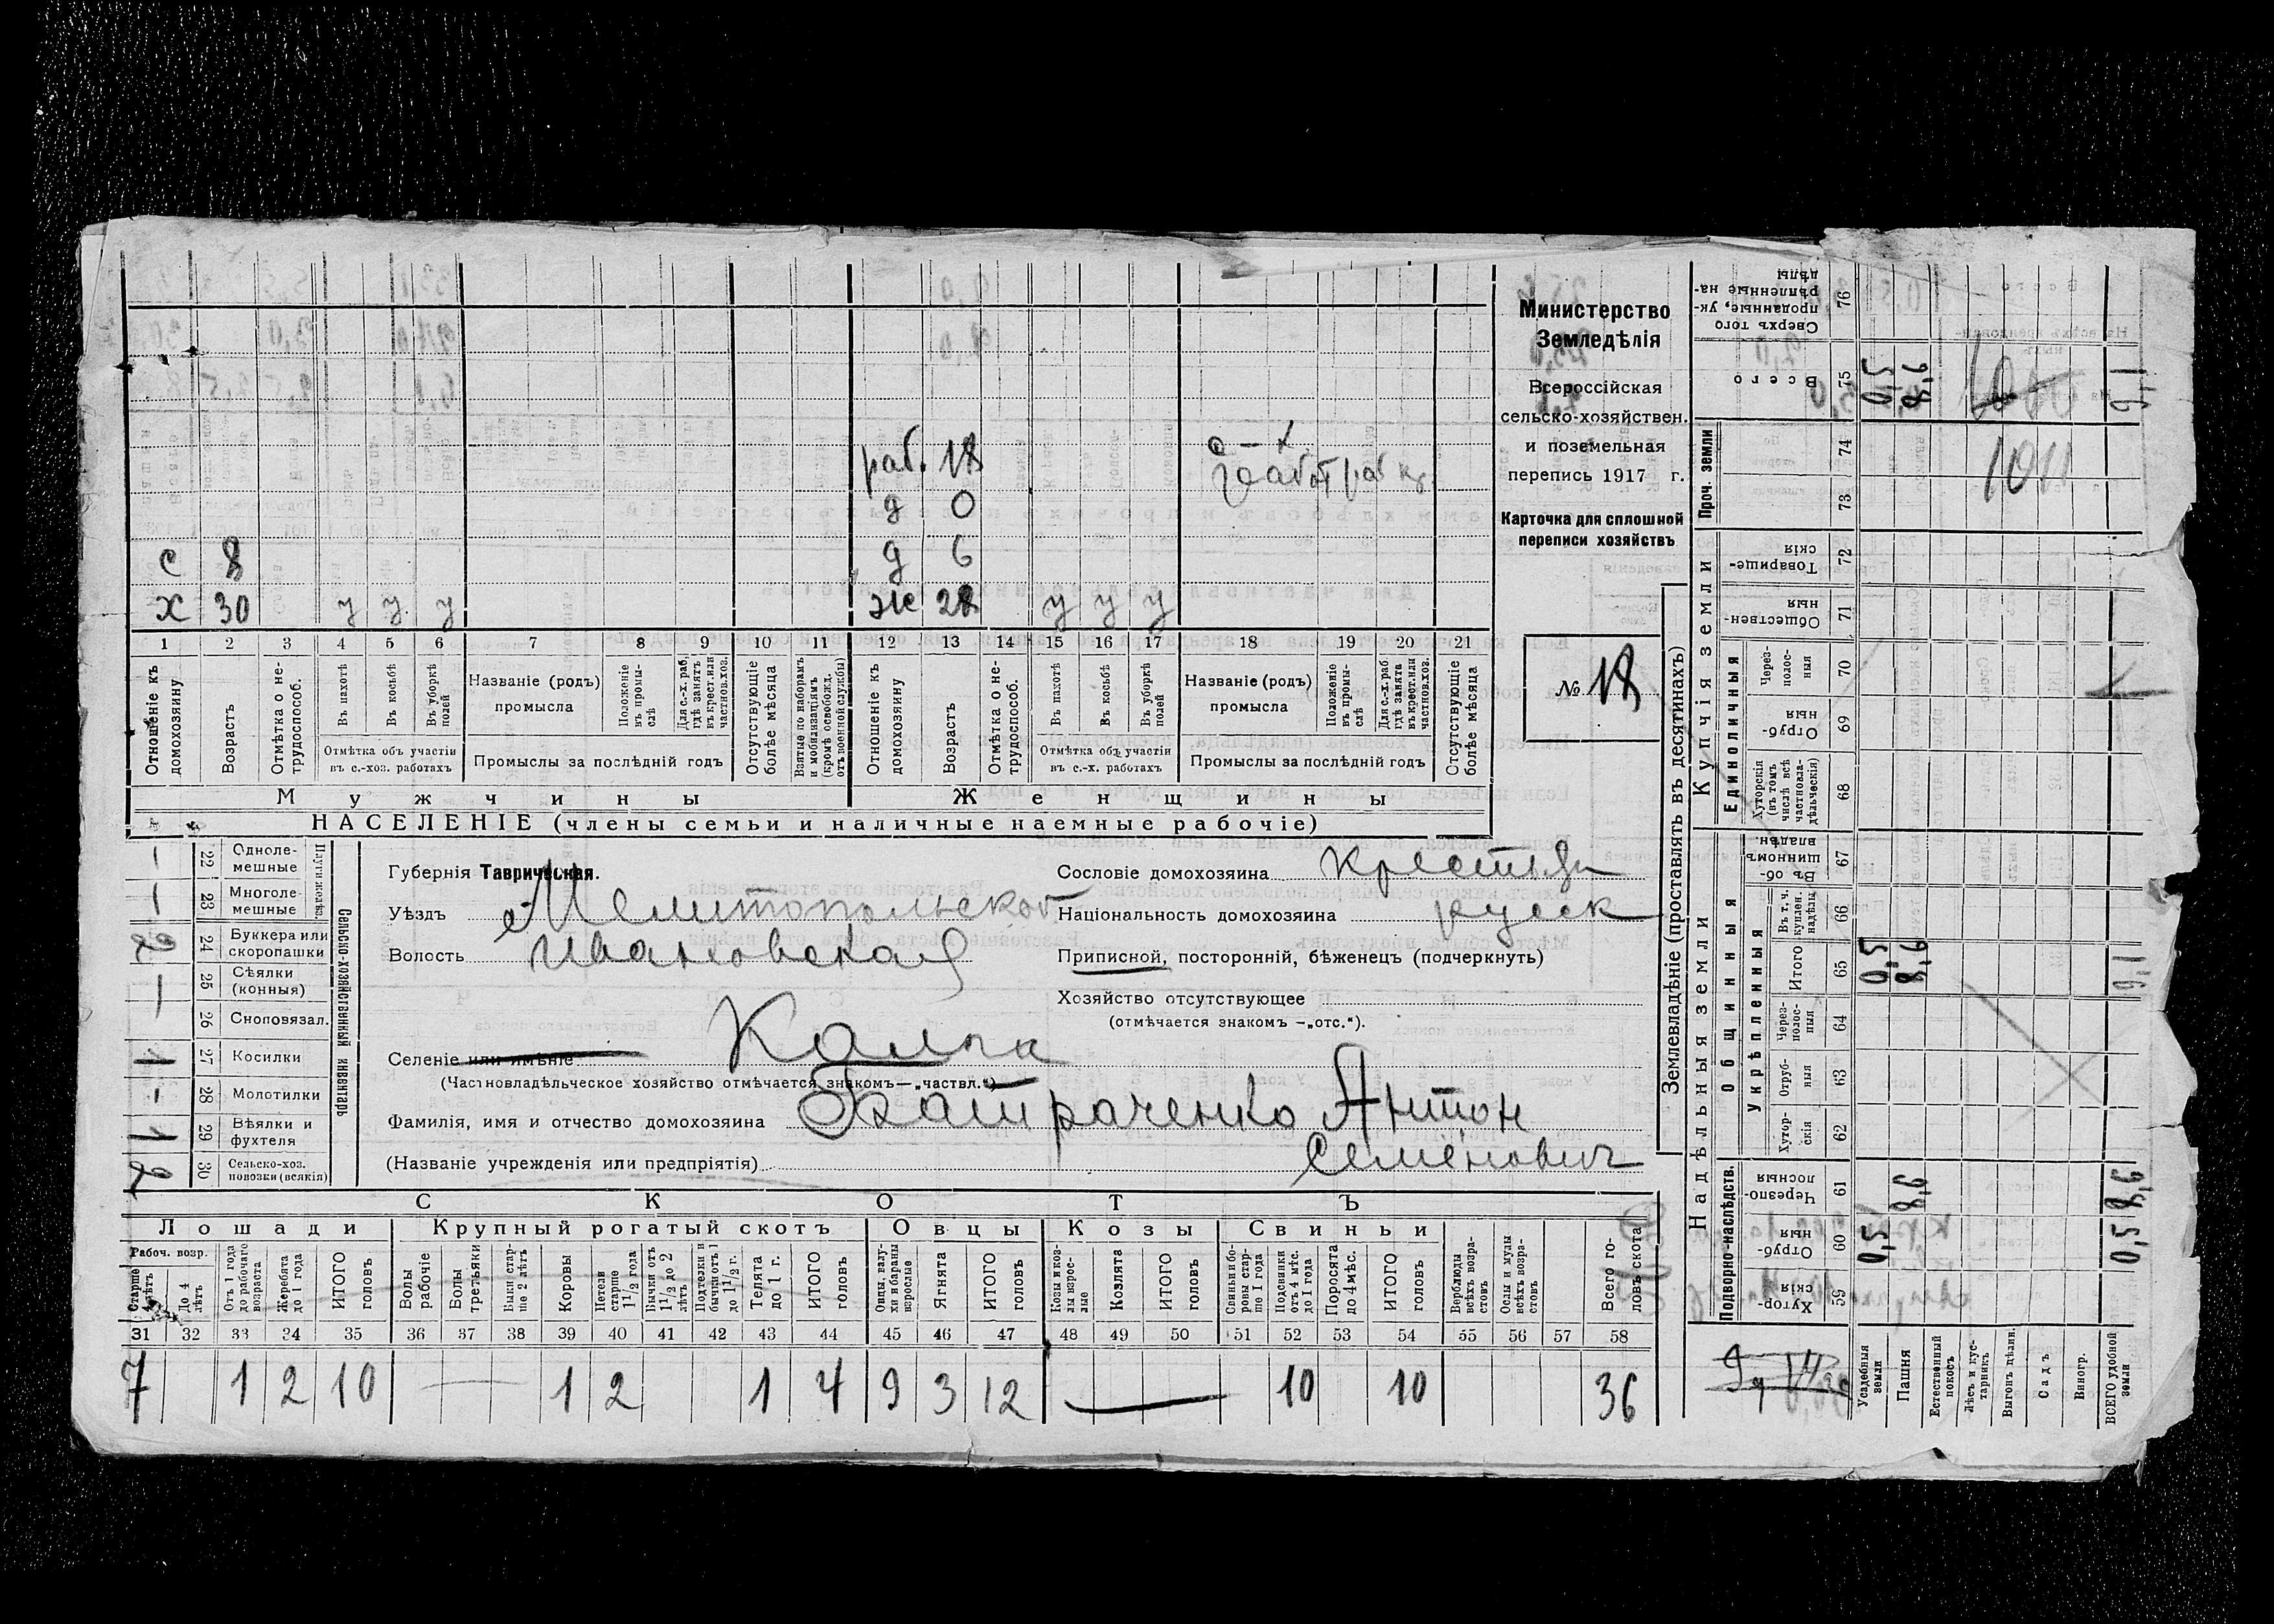 Министерство
Земледѣлія
Всероссійская
сельско-хозяйствен.
и поземельная
перепись 1917 г.
Карточка для сплошной
переписи хозяйствъ
№ 18
раб. 18
д 0
с 8 д 6
х 30 у у у ж 28 у у у
1 2 3 4 5 6 7 8 9 10 11 12 13 14 15 16 17 18 19 20 21
Отношеніе къ домохозяину
Возрастъ
Отмѣтка о не-трудоспособ.
Въ пахотѣ
Въ косьбѣ
Въ уборкѣ полей
Отмѣтка объ участіи въ с.-хоз. работахъ
Названіе (родъ) промысла
Положеніе въ промы-слѣ
Для с.-х. раб. гдѣ занятъ въ крест. или частнов. хоз.
Промыслы за послѣдній годъ
Отсутствующіе болѣе мѣсяца
Взятые по наборамъ и мобилизаціямъ (кромѣ освобожд. отъ военной службы)
Отношеніе къ домохозяину
Возрастъ
Отмѣтка о не-трудоспособ.
Въ пахотѣ
Въ косьбѣ
Въ уборкѣ полей
Отмѣтка объ участіи въ с.-х. работахъ
Названіе (родъ) промысла
Положеніе въ промы-слѣ
Для с.-х. раб. гдѣ занята въ крест. или частнов. хоз.
Промыслы за послѣдній годъ
Отсутствующіе болѣе мѣсяца
Мужчины Женщины
НАСЕЛЕНІЕ (члены семьи и наличные наемные рабочіе)
Сельско-хозяйственный инвентарь
— 22 Одноле-мешные
— 23 Многоле-мешные
2 24 Буккера или скоропашки
— 25 Сѣялки (конныя)
26 Сноповязал.
1 27 Косилки
- 28 Молотилки
1 29 Вѣялки и фухтеля
2 30 Сельско-хоз. повозки (всякія)
Губернія Таврическая.
Уѣздъ Мелитопольской
Волость Ивановская
Селеніе или имѣніе
(Частновладѣльческое хозяйство отмѣчается знакомъ—„частвл.“)
Фамилія, имя и отчество домохозяина Батраченко Антон
(Названіе учрежденія или предпріятія) Семенович
Сословіе домохозяина крестьян
Національность домохозяина русск
Приписной, посторонній, бѣженецъ (подчеркнуть)
Хозяйство отсутствующее
(отмѣчается знакомъ —„отс.“).
СКОТЪ
Лошади Крупный рогатый скотъ Овцы Козы Свиньи
Рабоч. возр.
Старше 4 лѣтъ
До 4 лѣтъ
Отъ 1 года до рабочаго возраста
Жеребята до 1 года
ИТОГО головъ
Волы рабочіе
Волы третьяки
Быки стар-ше 2 лѣтъ
Коровы
Нетели старше 1 1/2 года
Бычки отъ 1 1/2 до 2 лѣтъ
Подтелки и бычки отъ 1 до 1 1/2 г.
Телята до 1 г.
ИТОГО головъ
Овцы, валу-хи и бараны взрослые
Ягнята
ИТОГО головъ
Козы и коз-лы взрос-лые
Козлята
ИТОГО головъ
Свиньи и бо-ровы стар-ше 1 года
Подсвинки отъ 4 мѣс. до 1 года
Поросята до 4 мѣс.
ИТОГО головъ
Верблюды всѣхъ возра-стовъ
Ослы и мулы всѣхъ возра-стовъ
Всего го-ловъ скота
31 32 33 34 35 36 37 38 39 40 41 42 43 44 45 46 47 48 49 50 51 52 53 54 55 56 57 58
7 1 2 10 — 1 2 1 4 9 3 12 — 10 10 36
Землевладѣніе (проставлять въ десятинахъ)
Надѣльныя земли Купчія земли Проч. земли
Подворно-наслѣдств.
Общинныя
Укрѣпленныя
Единоличныя
Хутор-скія 59
Отруб-ныя 60 0,5 0,5
Черезпо-лосныя 61 8,6 8,6
Хутор-скія 62
Отруб-ныя 63
Через-полос-ныя 64
Итого 65 0,5 8,6 9,1
Въ т. ч. куплен. надѣлы 66
Въ об-щинномъ владѣн. 67
Хуторскія (въ томъ числѣ всѣ частновла-дѣльческія) 68
Отруб-ныя 69
Через-полос-ныя 70
Обществен-ныя 71
Товарище-скія 72
73
74
Всего 75 0,5 8,6 9,1
Сверхъ того проданные, ук-рѣпленные на-дѣлы 76
Усадебныя земли
Пашня
Естественный покосъ
Лѣсъ и кус-тарникъ
Выгонъ цѣлин.
Садъ
Виногр.
ВСЕГО удобной земли